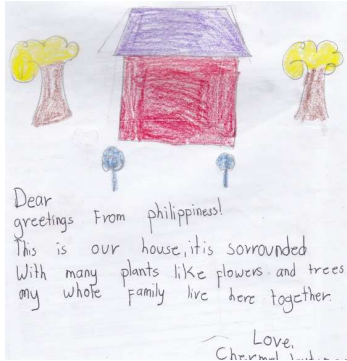 Dear
greetings From philippiness!
This is our house, it is sorrounded
With many plants like flowers and trees
my whole family live here together.
Love,